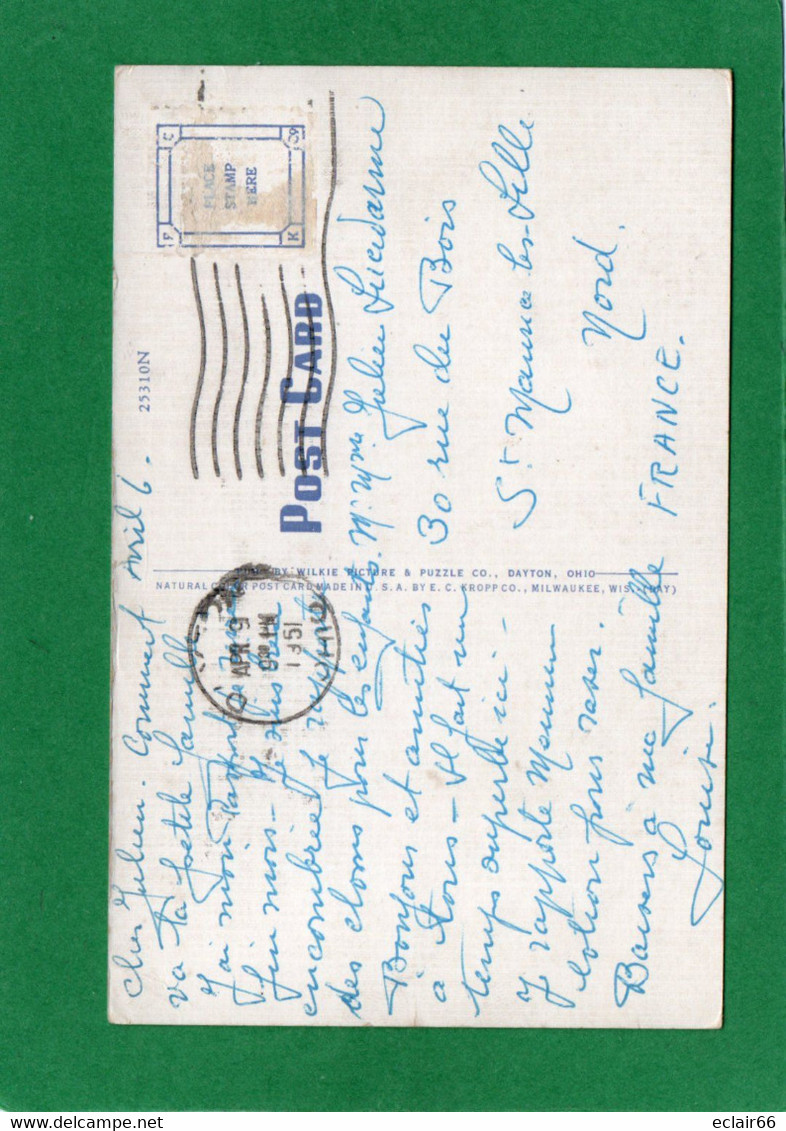 Avril 6.
Cher Julien. Comment
va ta petite famille
J'ai mon Passeport
fin mois - Je suis
encombrée Je
des choses pour les enfants.
Bonjour et amitiés
à tous - Il fait un
temps superbe ici -
J'apporte Mennen
lotion pour raser.
Baisers à ma famille
Louise.
25310N
PLACE
STAMP
HERE
F K
POST CARD
APR 9
9 30 PM
1951
OHIO
BY WILKIE PICTURE & PUZZLE CO., DAYTON, OHIO
NATURAL COLOR POST CARD MADE IN U. S. A. BY E. C. KROPP CO., MILWAUKEE, WIS. (DAY)
Mr Mme Julien
30 rue du Bois
St Maurice les Lille
Nord.
FRANCE.
delcampe.net
eclair66